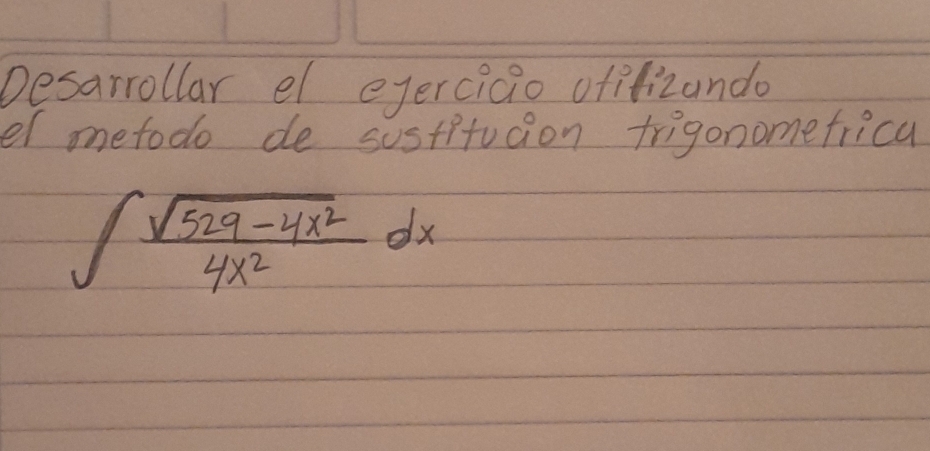 Desarrollar el ejercicio utilizando
el metodo de sustitucion trigonometrica
∫ √(529-4x²) / 4x² dx